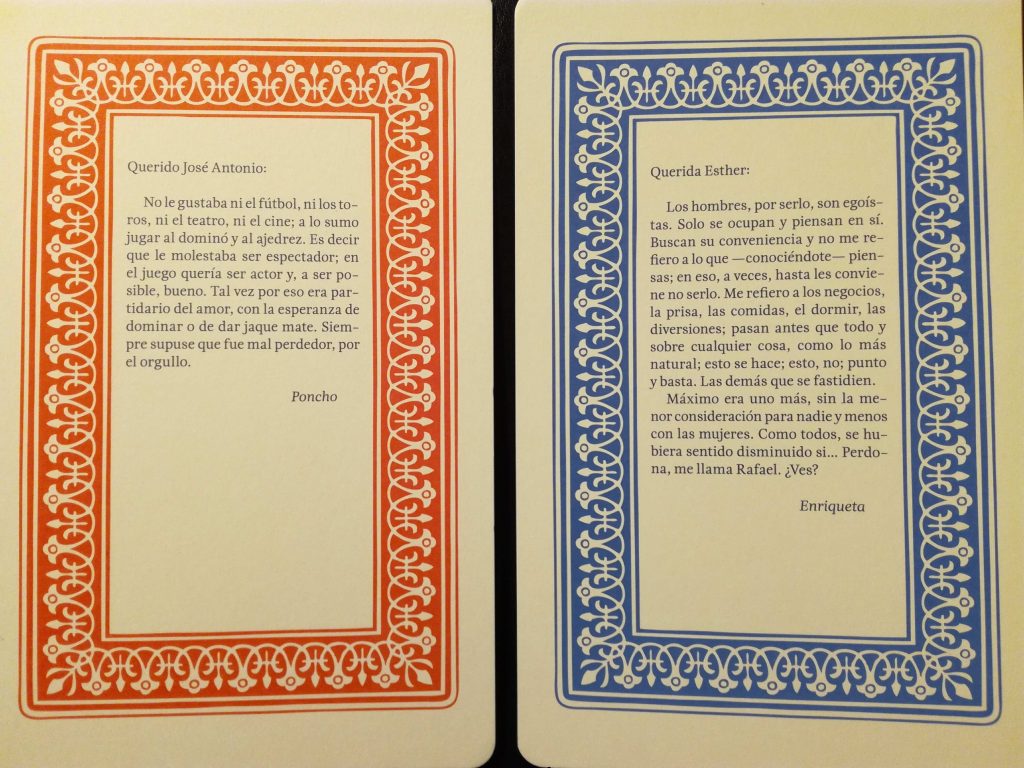 Querido José Antonio:
No le gustaba ni el fútbol, ni los to-
ros, ni el teatro, ni el cine; a lo sumo
jugar al dominó y al ajedrez. Es decir
que le molestaba ser espectador; en
el juego quería ser actor y, a ser po-
sible, bueno. Tal vez por eso era par-
tidario del amor, con la esperanza de
dominar o de dar jaque mate. Siem-
pre supuse que fue mal perdedor, por
el orgullo.
Poncho
Querida Esther:
Los hombres, por serlo, son egoís-
tas. Solo se ocupan y piensan en sí.
Buscan su conveniencia y no me re-
fiero a lo que —conociéndote— pien-
sas; en eso, a veces, hasta les convie-
ne no serlo. Me refiero a los negocios,
la prisa, las comidas, el dormir, las
diversiones; pasan antes que todo y
sobre cualquier cosa, como lo más
natural; esto se hace; esto, no; punto
y basta. Las demás que se fastidien.
Máximo era uno más, sin la me-
nor consideración para nadie y menos
con las mujeres. Como todos, se hu-
biera sentido disminuido si... Perdo-
na, me llama Rafael. ¿Ves?
Enriqueta